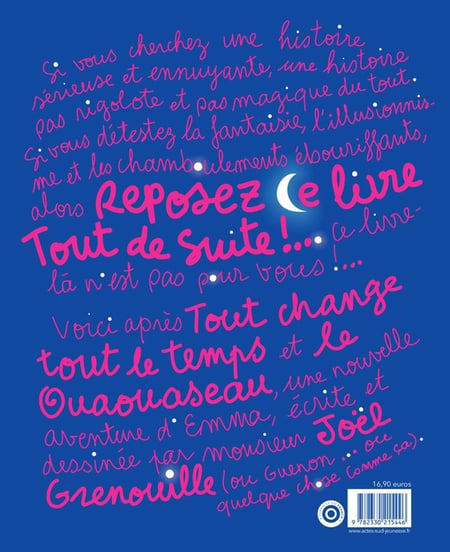 Si vous cherchez une histoire
sérieuse et ennuyante, une histoire
pas rigolote et pas magique du tout.
Si vous détestez la fantaisie, l'illusionnis-
me et les chamboulements ébouriffants,
alors Reposez Ce livre
Tout de suite !... ce livre-
là n'est pas pour vous !...
Voici après Tout change
tout le temps et le
Ouaouaseau, une nouvelle
aventure d'Emma, écrite et
dessinée par monsieur Joël
Grenouille (ou Guenon... ou
quelque chose comme ça).
16,90 euros
9 782330 215446
www.actes-sud-jeunesse.fr